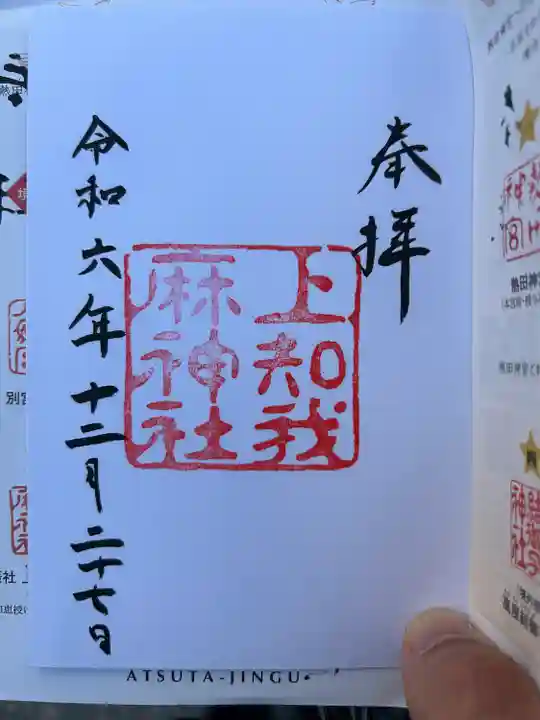 奉拝
上知我
麻神社
令和六年十二月二十七日
ATSUTA-JINGU
別宮
熱田神宮
神社